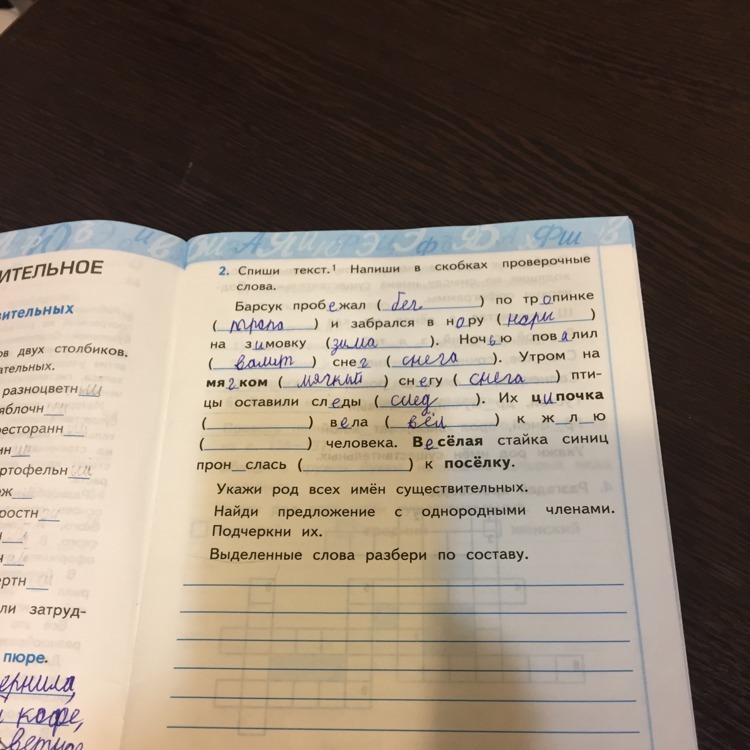 ИТЕЛЬНОЕ
вительных
ов двух столбиков.
ательных.
разноцветн ш
яблочн
ресторанн
нн ш
ртофельн ш
еж
ростн
н
н
ертн
ли затруд-
пюре.
ернила,
кофе,
2. Спиши текст.¹ Напиши в скобках проверочные
слова.
Барсук пробежал ( бег ) по тропинке
( тропа ) и забрался в нору ( норы )
на зимовку ( зима ). Ночью повалил
( валит ) снег ( снега ). Утром на
мягком ( мягкий ) снегу ( снега ) пти-
цы оставили следы ( след ). Их ципочка
( ) вела ( вёл ) к ж_л_ю
( ) человека. Весёлая стайка синиц
прон_слась ( ) к посёлку.
Укажи род всех имён существительных.
Найди предложение с однородными членами.
Подчеркни их.
Выделенные слова разбери по составу.